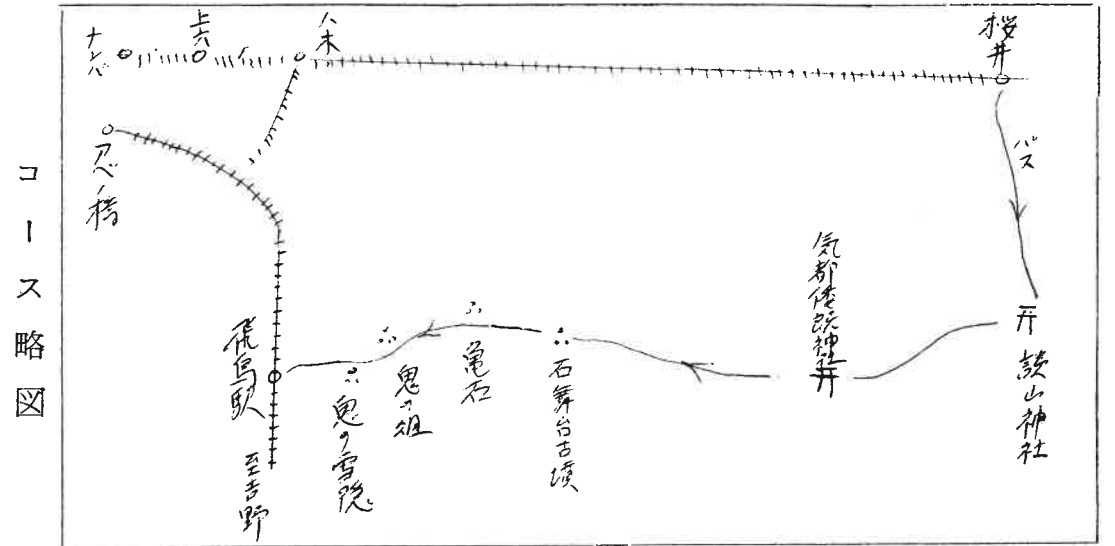 コース略図
ナンバ
上六
八木
桜井
アベノ橋
バス
談山神社
気都倭既神社
石舞台古墳
亀石
鬼の俎
鬼の雪隠
飛鳥駅
至吉野